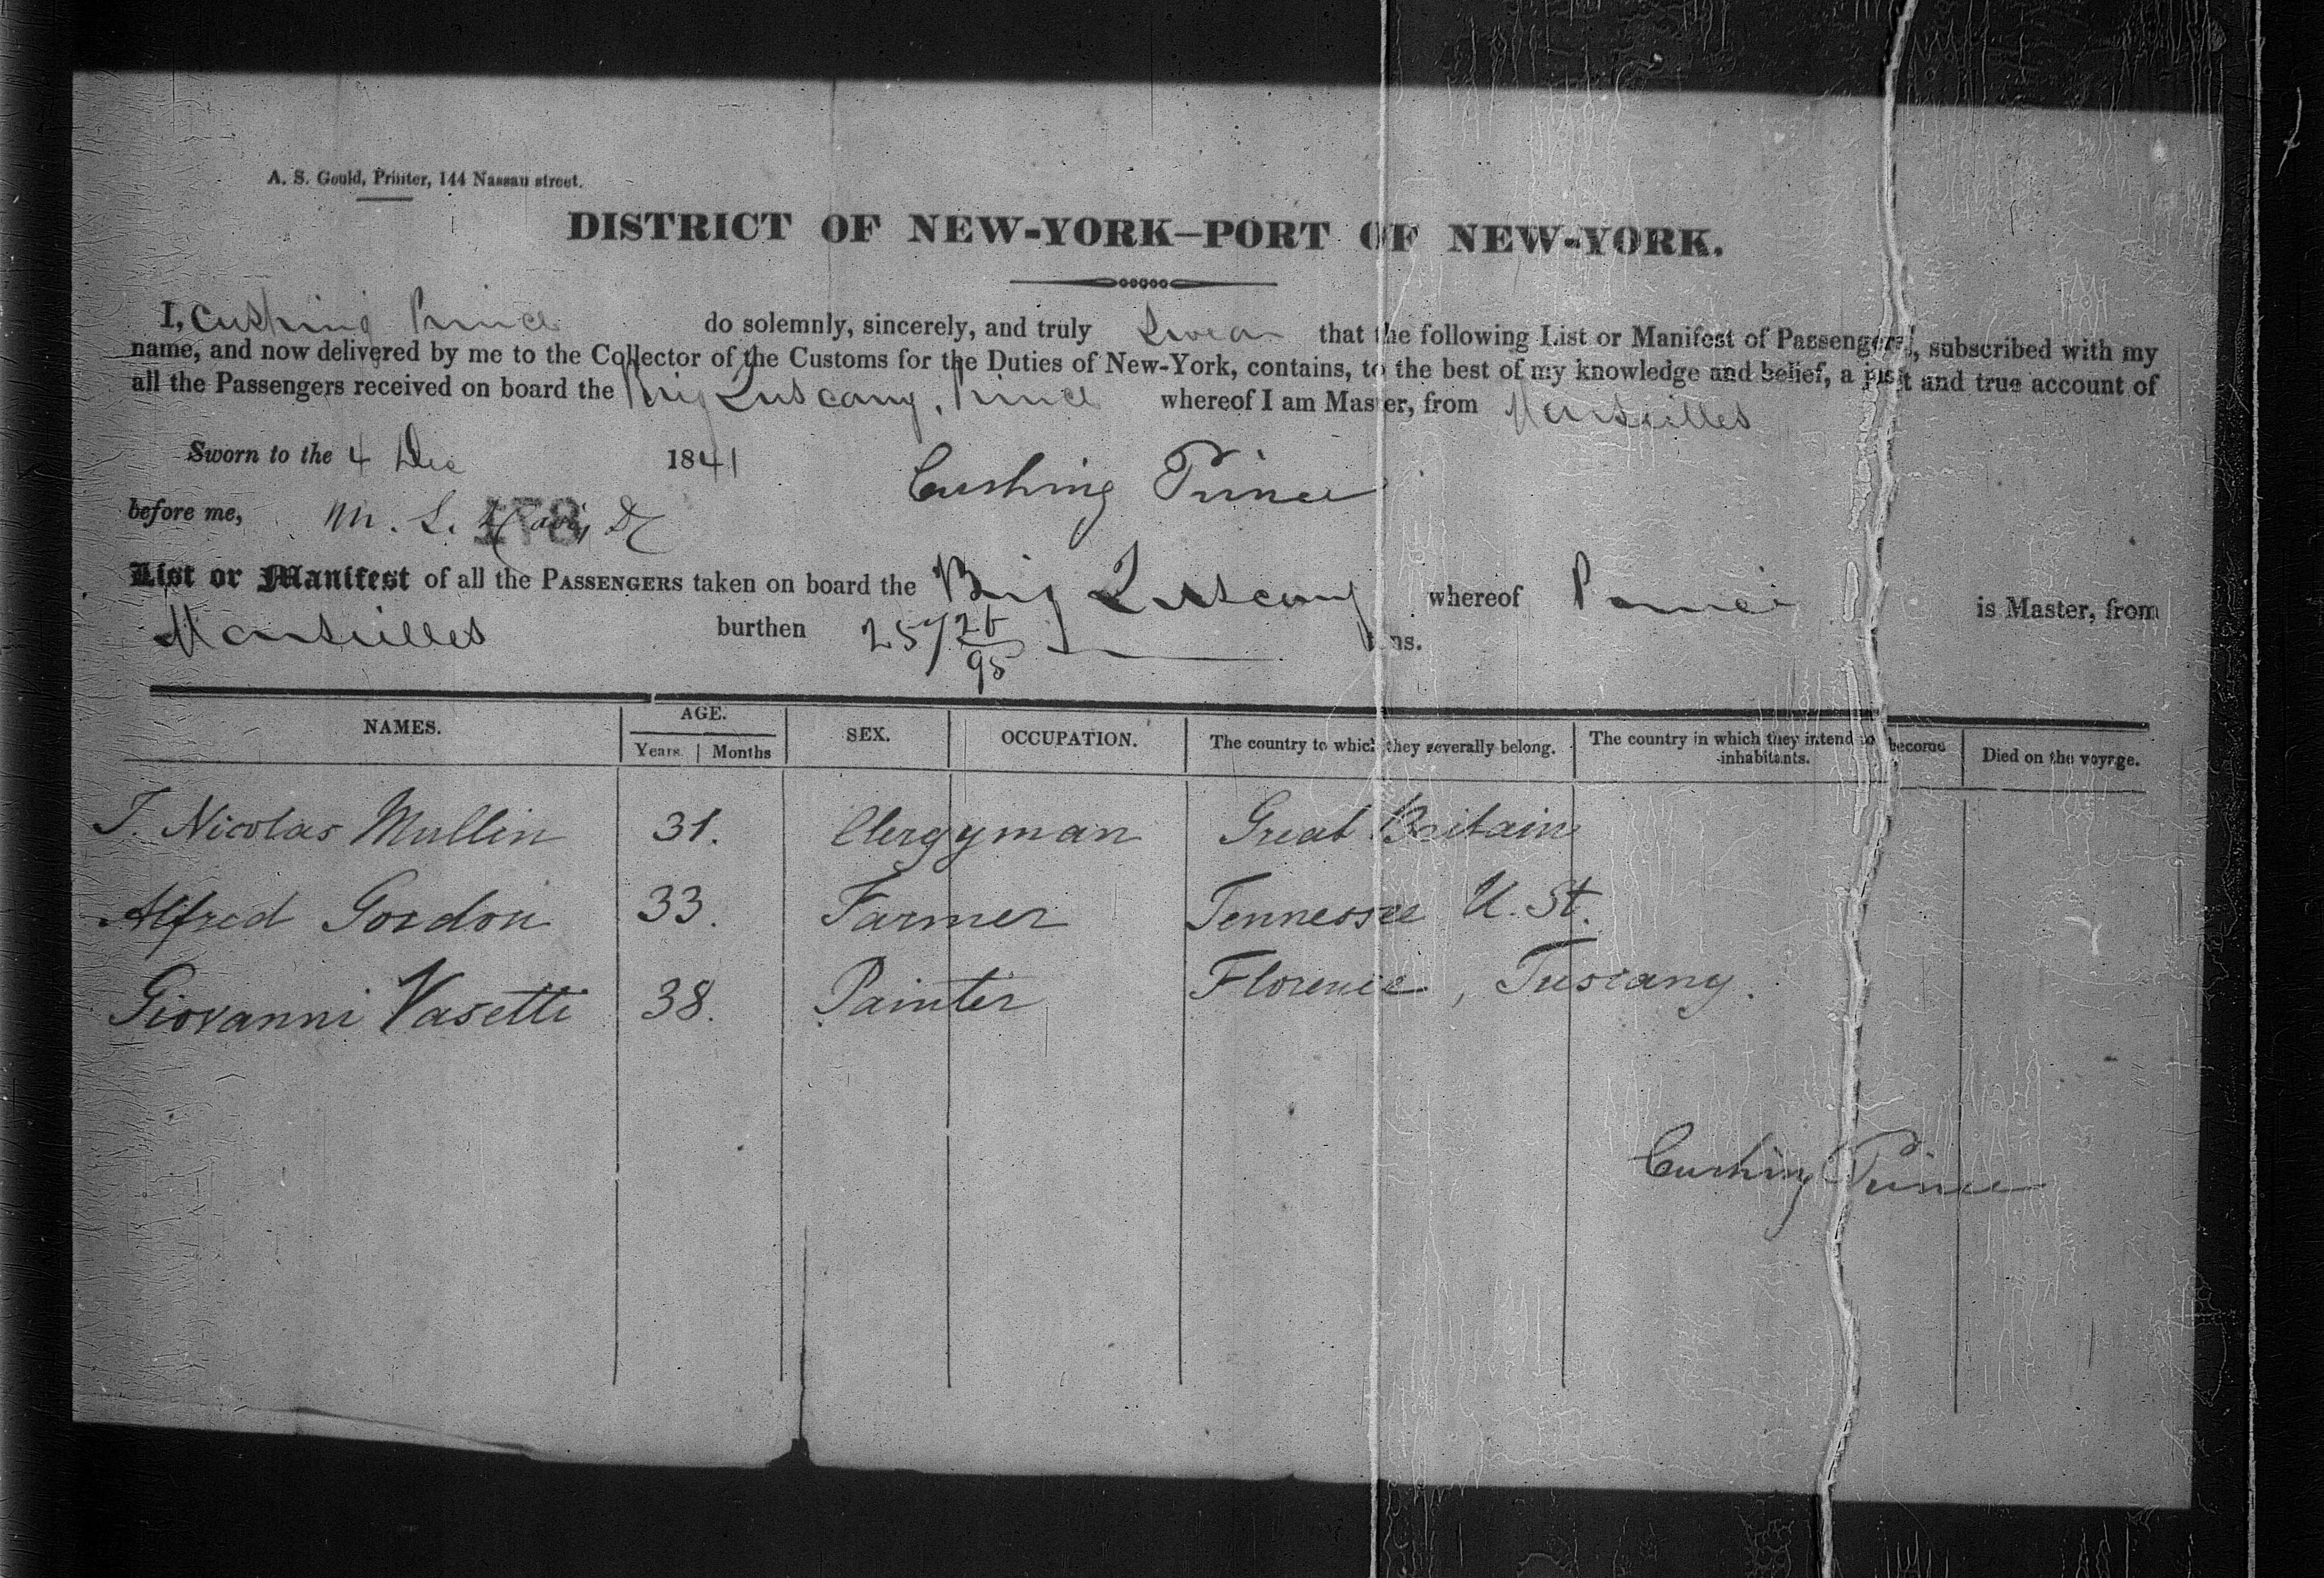 A. S. Gould, Printer, 144 Nassau street.
DISTRICT OF NEW-YORK—PORT OF NEW-YORK.
I, Cushing Prince do solemnly, sincerely, and truly Swear that the following List or Manifest of Passengers, subscribed with my
name, and now delivered by me to the Collector of the Customs for the Duties of New-York, contains, to the best of my knowledge and belief, a just and true account of
all the Passengers received on board the Brig Tuscany, Prince whereof I am Master, from Marseilles
Sworn to the 4 Dec 1841 Cushing Prince
before me, M. L. Davis DC
178
List or Manifest of all the PASSENGERS taken on board the Brig Tuscany whereof Prince is Master, from
Marseilles burthen 257 26/95 tons.
NAMES. AGE. SEX. OCCUPATION. The country to which they severally belong. The country in which they intend to become inhabitants. Died on the voyage.
Years Months
T. Nicolas Mullin 31. Clergyman Great Britain
Alfred Gordon 33. Farmer Tennessee U. St.
Giovanni Vasetti 38. Painter Florence, Tuscany.
Cushing Prince